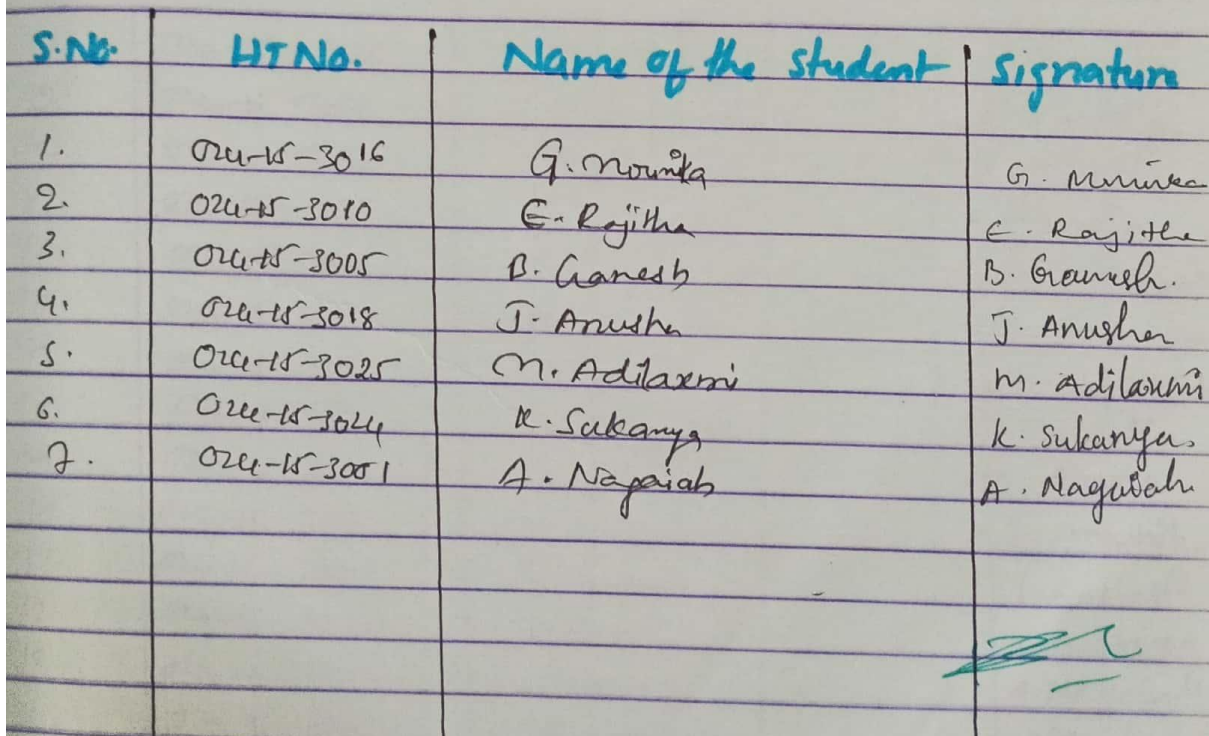 S.No. HTNo. Name of the student Signature
1. 024-15-3016 G. Mounika G. Mounika
2. 024-15-3010 E. Rajitha E. Rajitha
3. 024-15-3005 B. Ganesh B. Ganesh.
4. 024-15-3018 J. Anusha J. Anusha
5. 024-15-3025 M. Adilaxmi M. Adilaxmi
6. 024-15-3024 K. Sukanya K. Sukanya.
7. 024-15-3001 A. Nagaiah A. Nagaiah